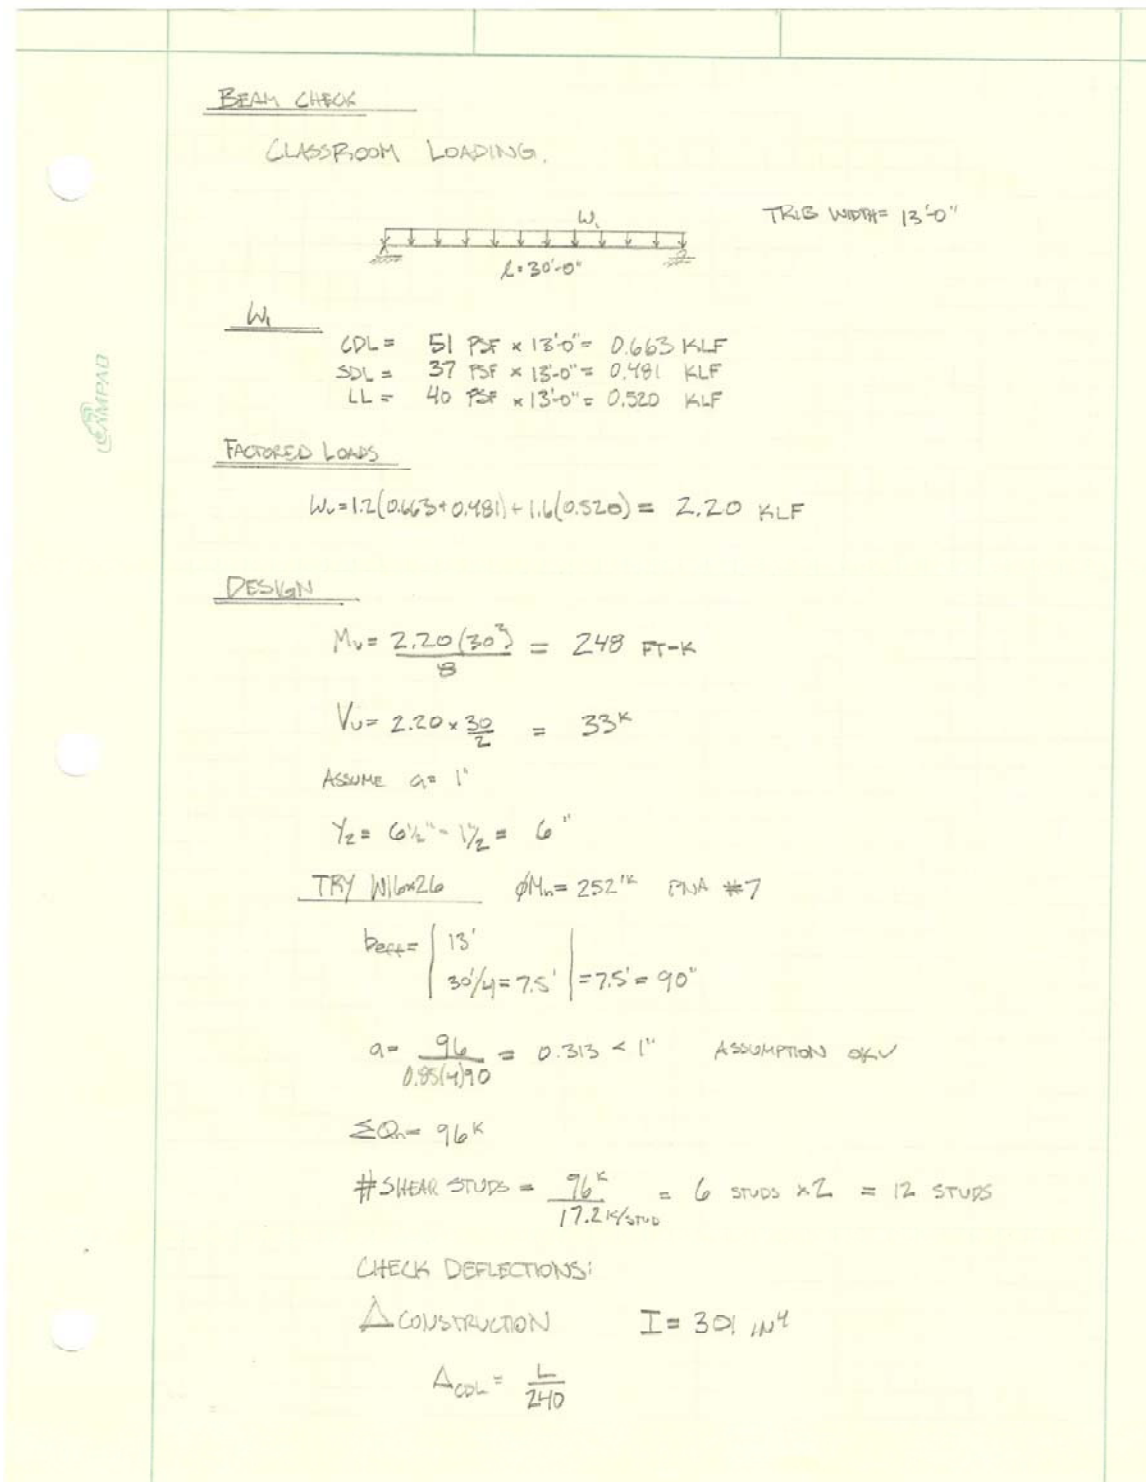 BEAM CHECK
CLASSROOM LOADING.
W₁
TRIB WIDTH= 13'-0"
l=30'-0"
W₁
CDL= 51 PSF × 13'-0"= 0.663 KLF
SDL= 37 PSF × 13'-0"= 0.481 KLF
LL= 40 PSF ×13'-0"= 0.520 KLF
CAMPAD
FACTORED LOADS
Wu=1.2(0.663+0.481)+1.6(0.520)= 2.20 KLF
DESIGN
Mu= 2.20(30²)/8 = 248 FT-K
Vu= 2.20×30/2 = 33ᴷ
ASSUME a= 1"
Y2= 6½"-1"/2= 6"
TRY W16×26 φMn= 252'ᴷ PNA #7
beff= | 13'
30'/4=7.5' | =7.5'=90"
a= 96/0.85(4)90 = 0.313 < 1" ASSUMPTION OK✓
ΣQn= 96ᴷ
#SHEAR STUDS = 96ᴷ/17.2ᴷ/STUD = 6 STUDS ×2 = 12 STUDS
CHECK DEFLECTIONS:
Δ CONSTRUCTION I= 301 IN⁴
ΔCDL= L/240